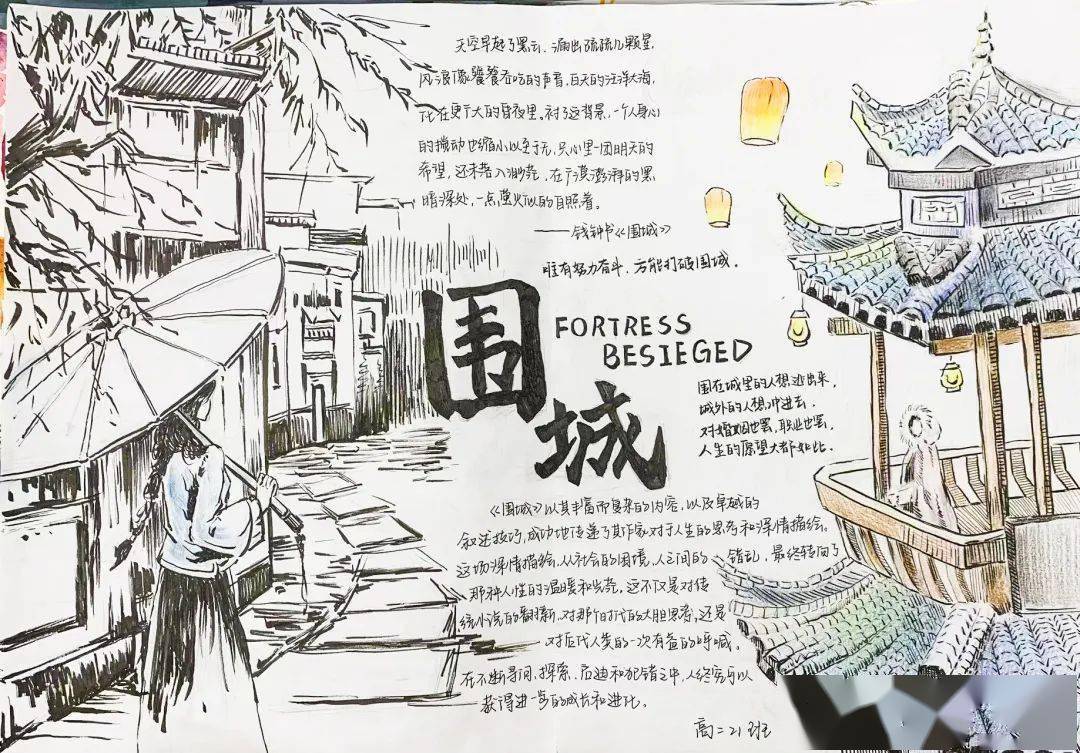 天空早起了黑云，漏出疏疏几颗星，
风浪像饕餮吞吃的声音，白天的汪洋大海，
在更广大的昏夜里。衬了这背景，一个人身心
的搅动也缩小以至于无，只心里一团明天的
希望，还未落入渺茫，在广漠澎湃的黑
暗深处，一点萤火似的自照着。
——钱钟书《围城》
唯有努力奋斗，方能打破围城。
围城
FORTRESS
BESIEGED
围在城里的人想逃出来，
城外的人想冲进去，
对婚姻也罢，职业也罢，
人生的愿望大都如此。
《围城》以其丰富而复杂的内容，以及卓越的
叙述技巧，成功地传递了其作家对于人生的思考和深情描绘。
这场深情描绘，从社会的困境，人之间的错乱，最终转向了
那种人性的温暖和光亮，这不仅是对传
统小说的翻新，对那个时代的大胆思考，还是
对后代人类的一次有益的呼喊。
在不断寻问，探索，启迪和犯错之中，人终究可以
获得进一步的成长和进化。
高二21班